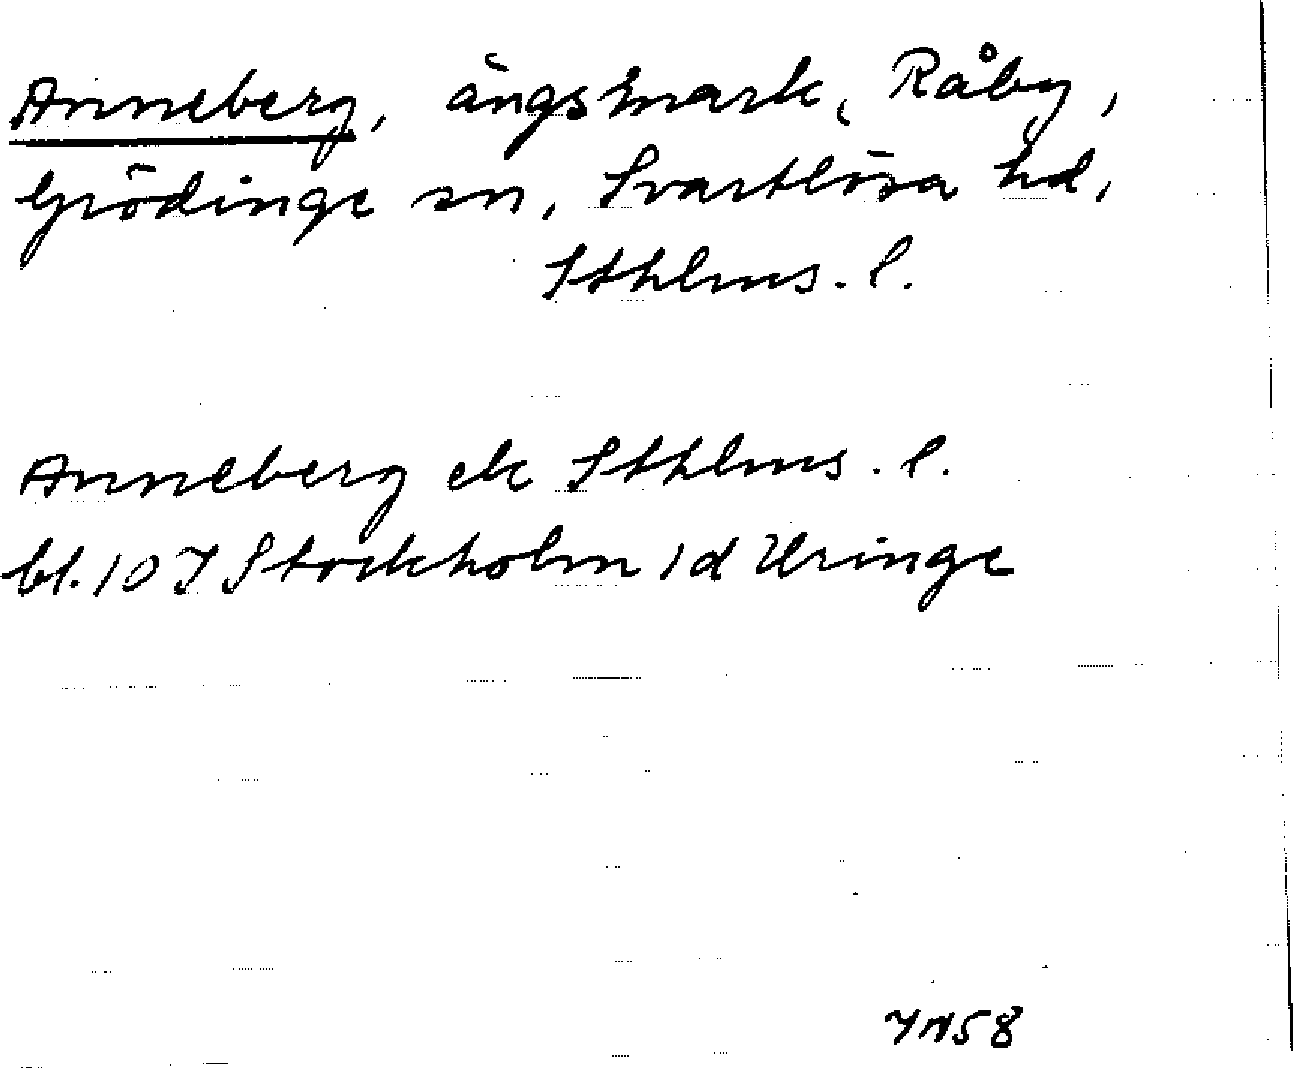 Anneberg, ängsmark, Råby,
Grödinge sn, Svartlösa hd,
Sthlms. l.
Anneberg ek Sthlms. l.
bl. 10 I Stockholm 1d Uringe
58